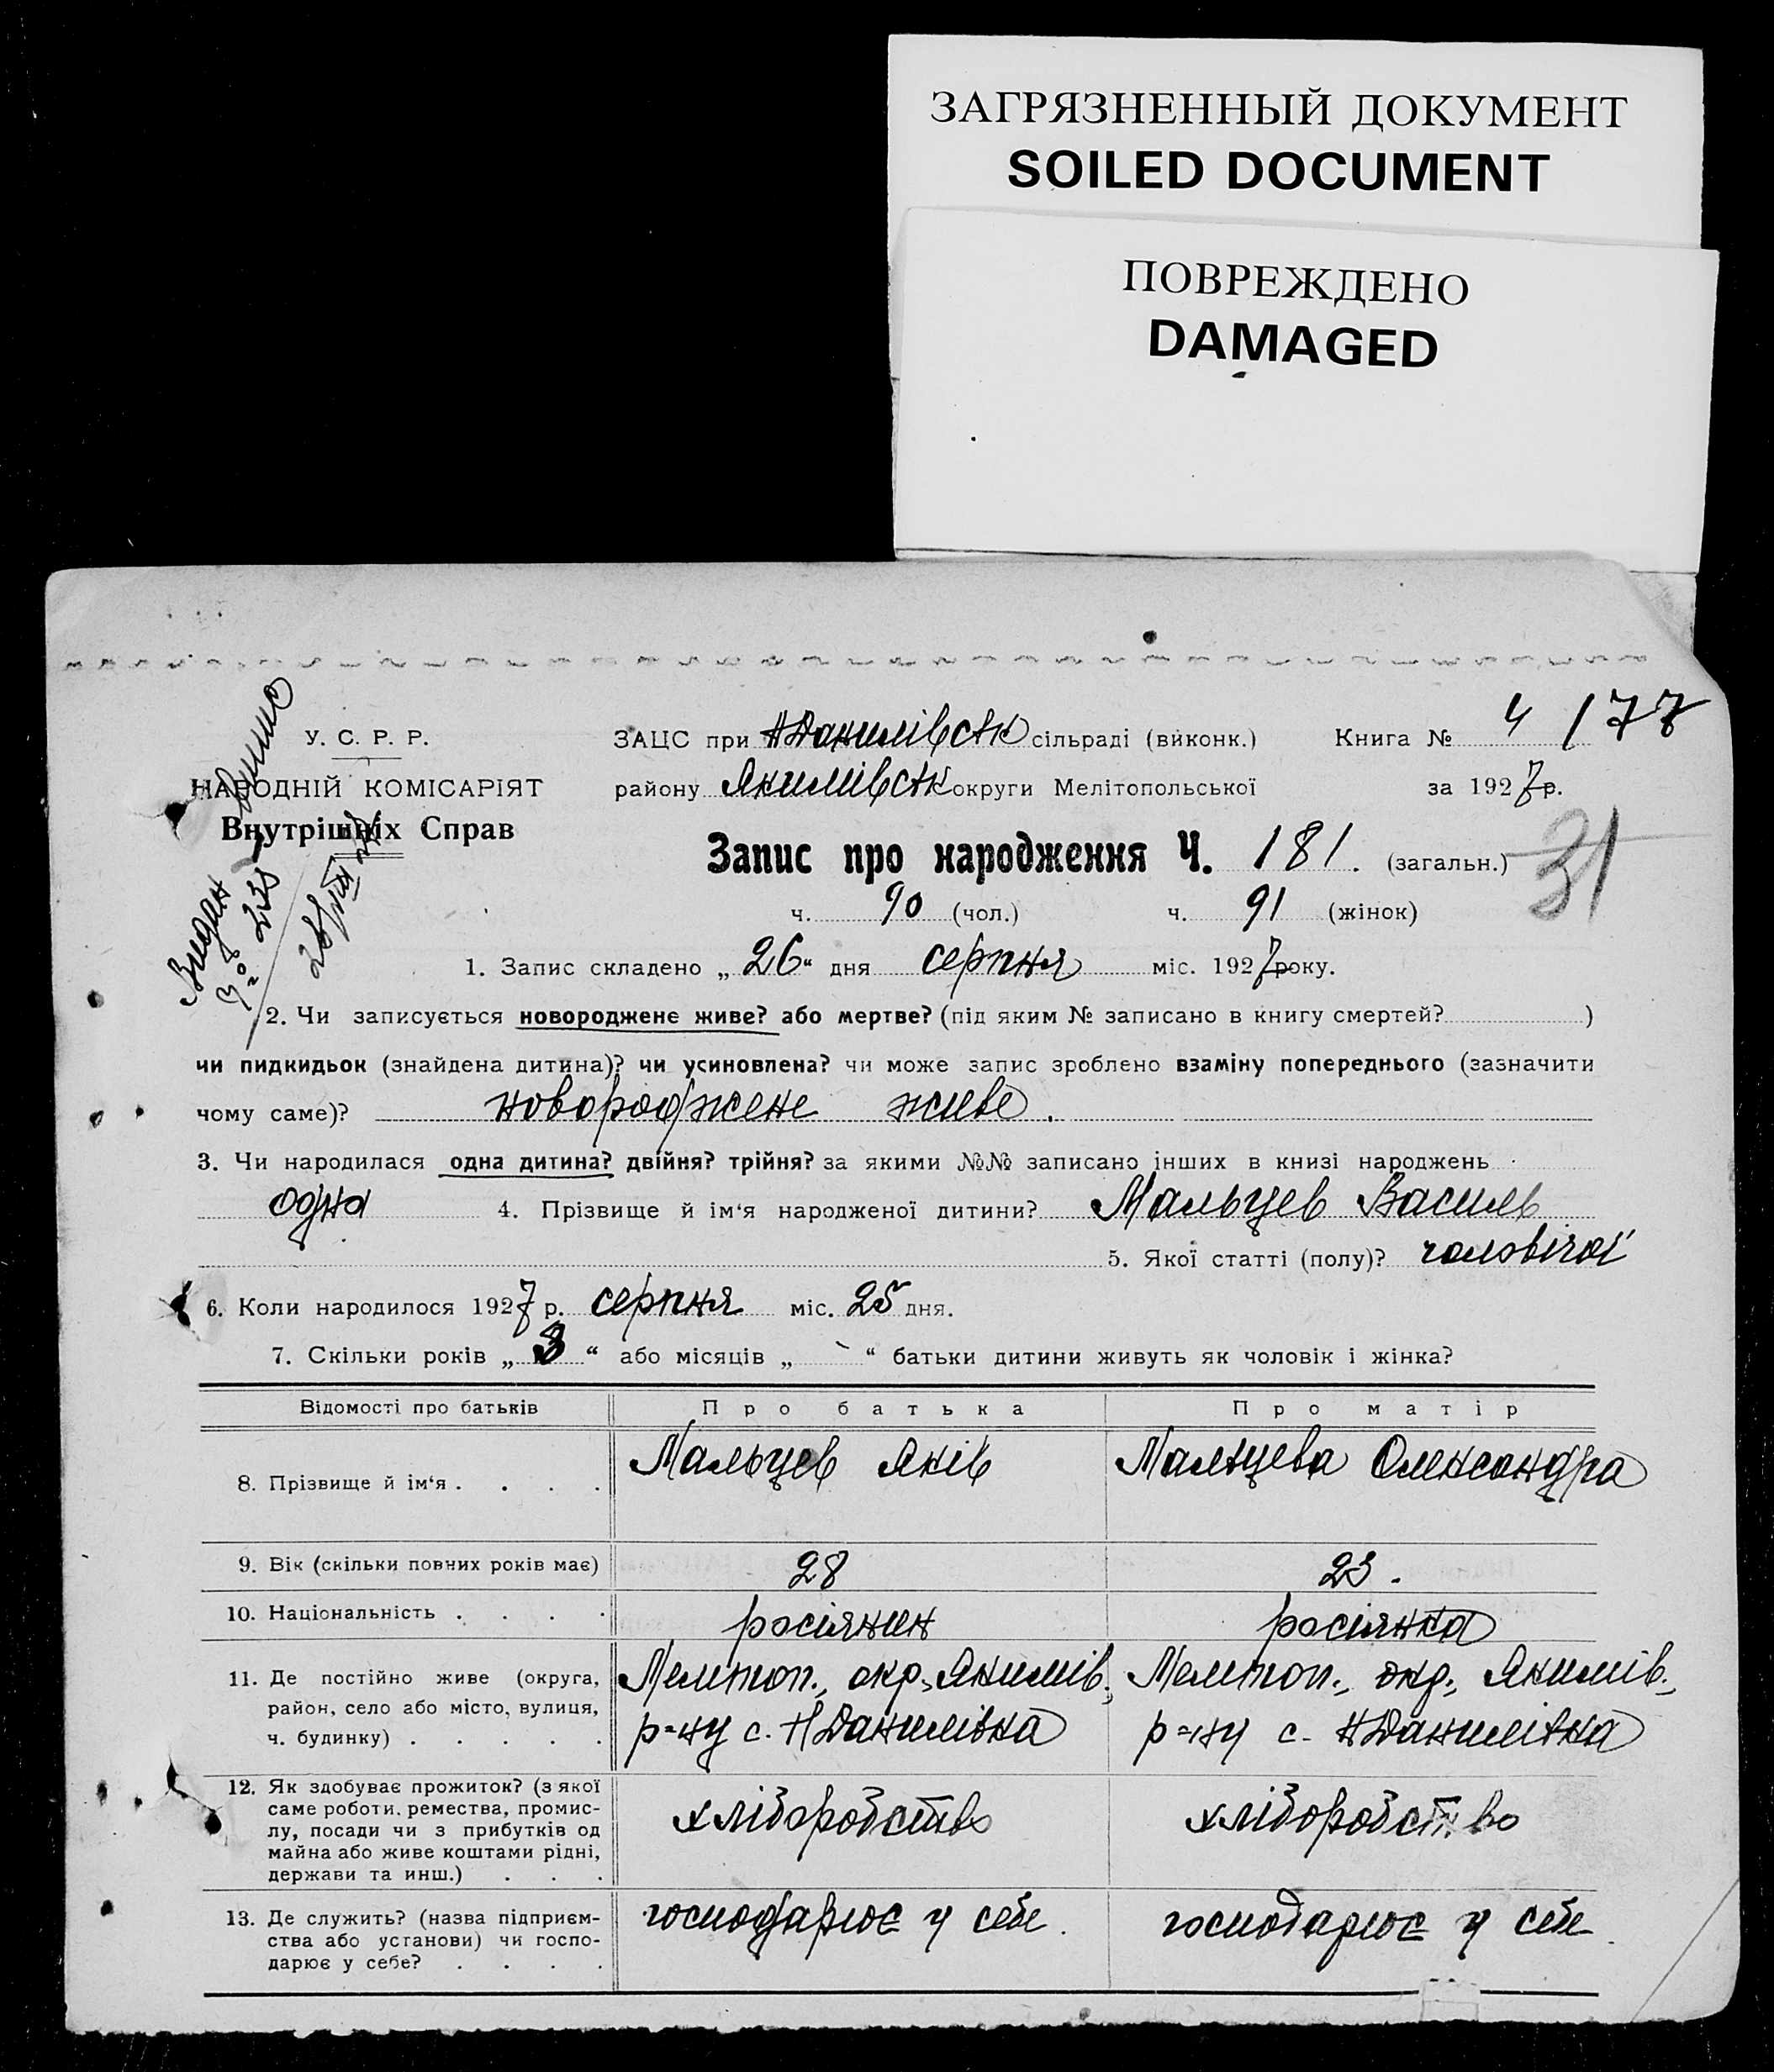 ЗАГРЯЗНЕННЫЙ ДОКУМЕНТ
SOILED DOCUMENT
ПОВРЕЖДЕНО
DAMAGED
У. С. Р. Р.
НАРОДНІЙ КОМІСАРІЯТ
Внутрішніх Справ
Видан
ЗАЦС при НДанилівськ сільраді (виконк.)
Книга № 4 /77
району Якимівськ округи Мелітопольської
за 1927 р.
Запис про народження Ч. 181. (загальн.)
31
ч. 90 (чол.) ч. 91 (жінок)
1. Запис складено „ 26 “ дня серпня міс. 1927 року.
2. Чи записується новороджене живе? або мертве? (під яким № записано в книгу смертей? )
чи пидкидьок (знайдена дитина)? чи усиновлена? чи може запис зроблено взаміну попереднього (зазначити
чому саме)? новороджене живе.
3. Чи народилася одна дитина? двійня? трійня? за якими №№ записано інших в книзі народжень
одна 4. Прізвище й ім‘я народженої дитини? Мальцев Василь
5. Якої статті (полу)? чоловічої
6. Коли народилося 1927 р. серпня міс. 25 дня.
7. Скільки років „ 3 “ або місяців „ “ батьки дитини живуть як чоловік і жінка?
Відомості про батьків Про батька Про матір
8. Прізвище й ім‘я . . . . Мальцев Яків Мальцева Олександра
9. Вік (скільки повних років має) 28 23.
10. Національність . . . . росіянин росіянка
11. Де постійно живе (округа,
район, село або місто, вулиця,
ч. будинку) . . . . .
Мелитоп., окр., Якимів.,
р=ну с. НДанилівка
Мелитоп., окр., Якимів.,
р=ну с. НДанилівка
12. Як здобуває прожиток? (з якої
саме роботи, ремества, промис-
лу, посади чи з прибутків од
майна або живе коштами рідні,
держави та инш.) . . .
хліборобство
хліборобство
13. Де служить? (назва підприєм-
ства або установи) чи госпо-
дарює у себе? . . . .
господарює у себе.
господарює у себе.